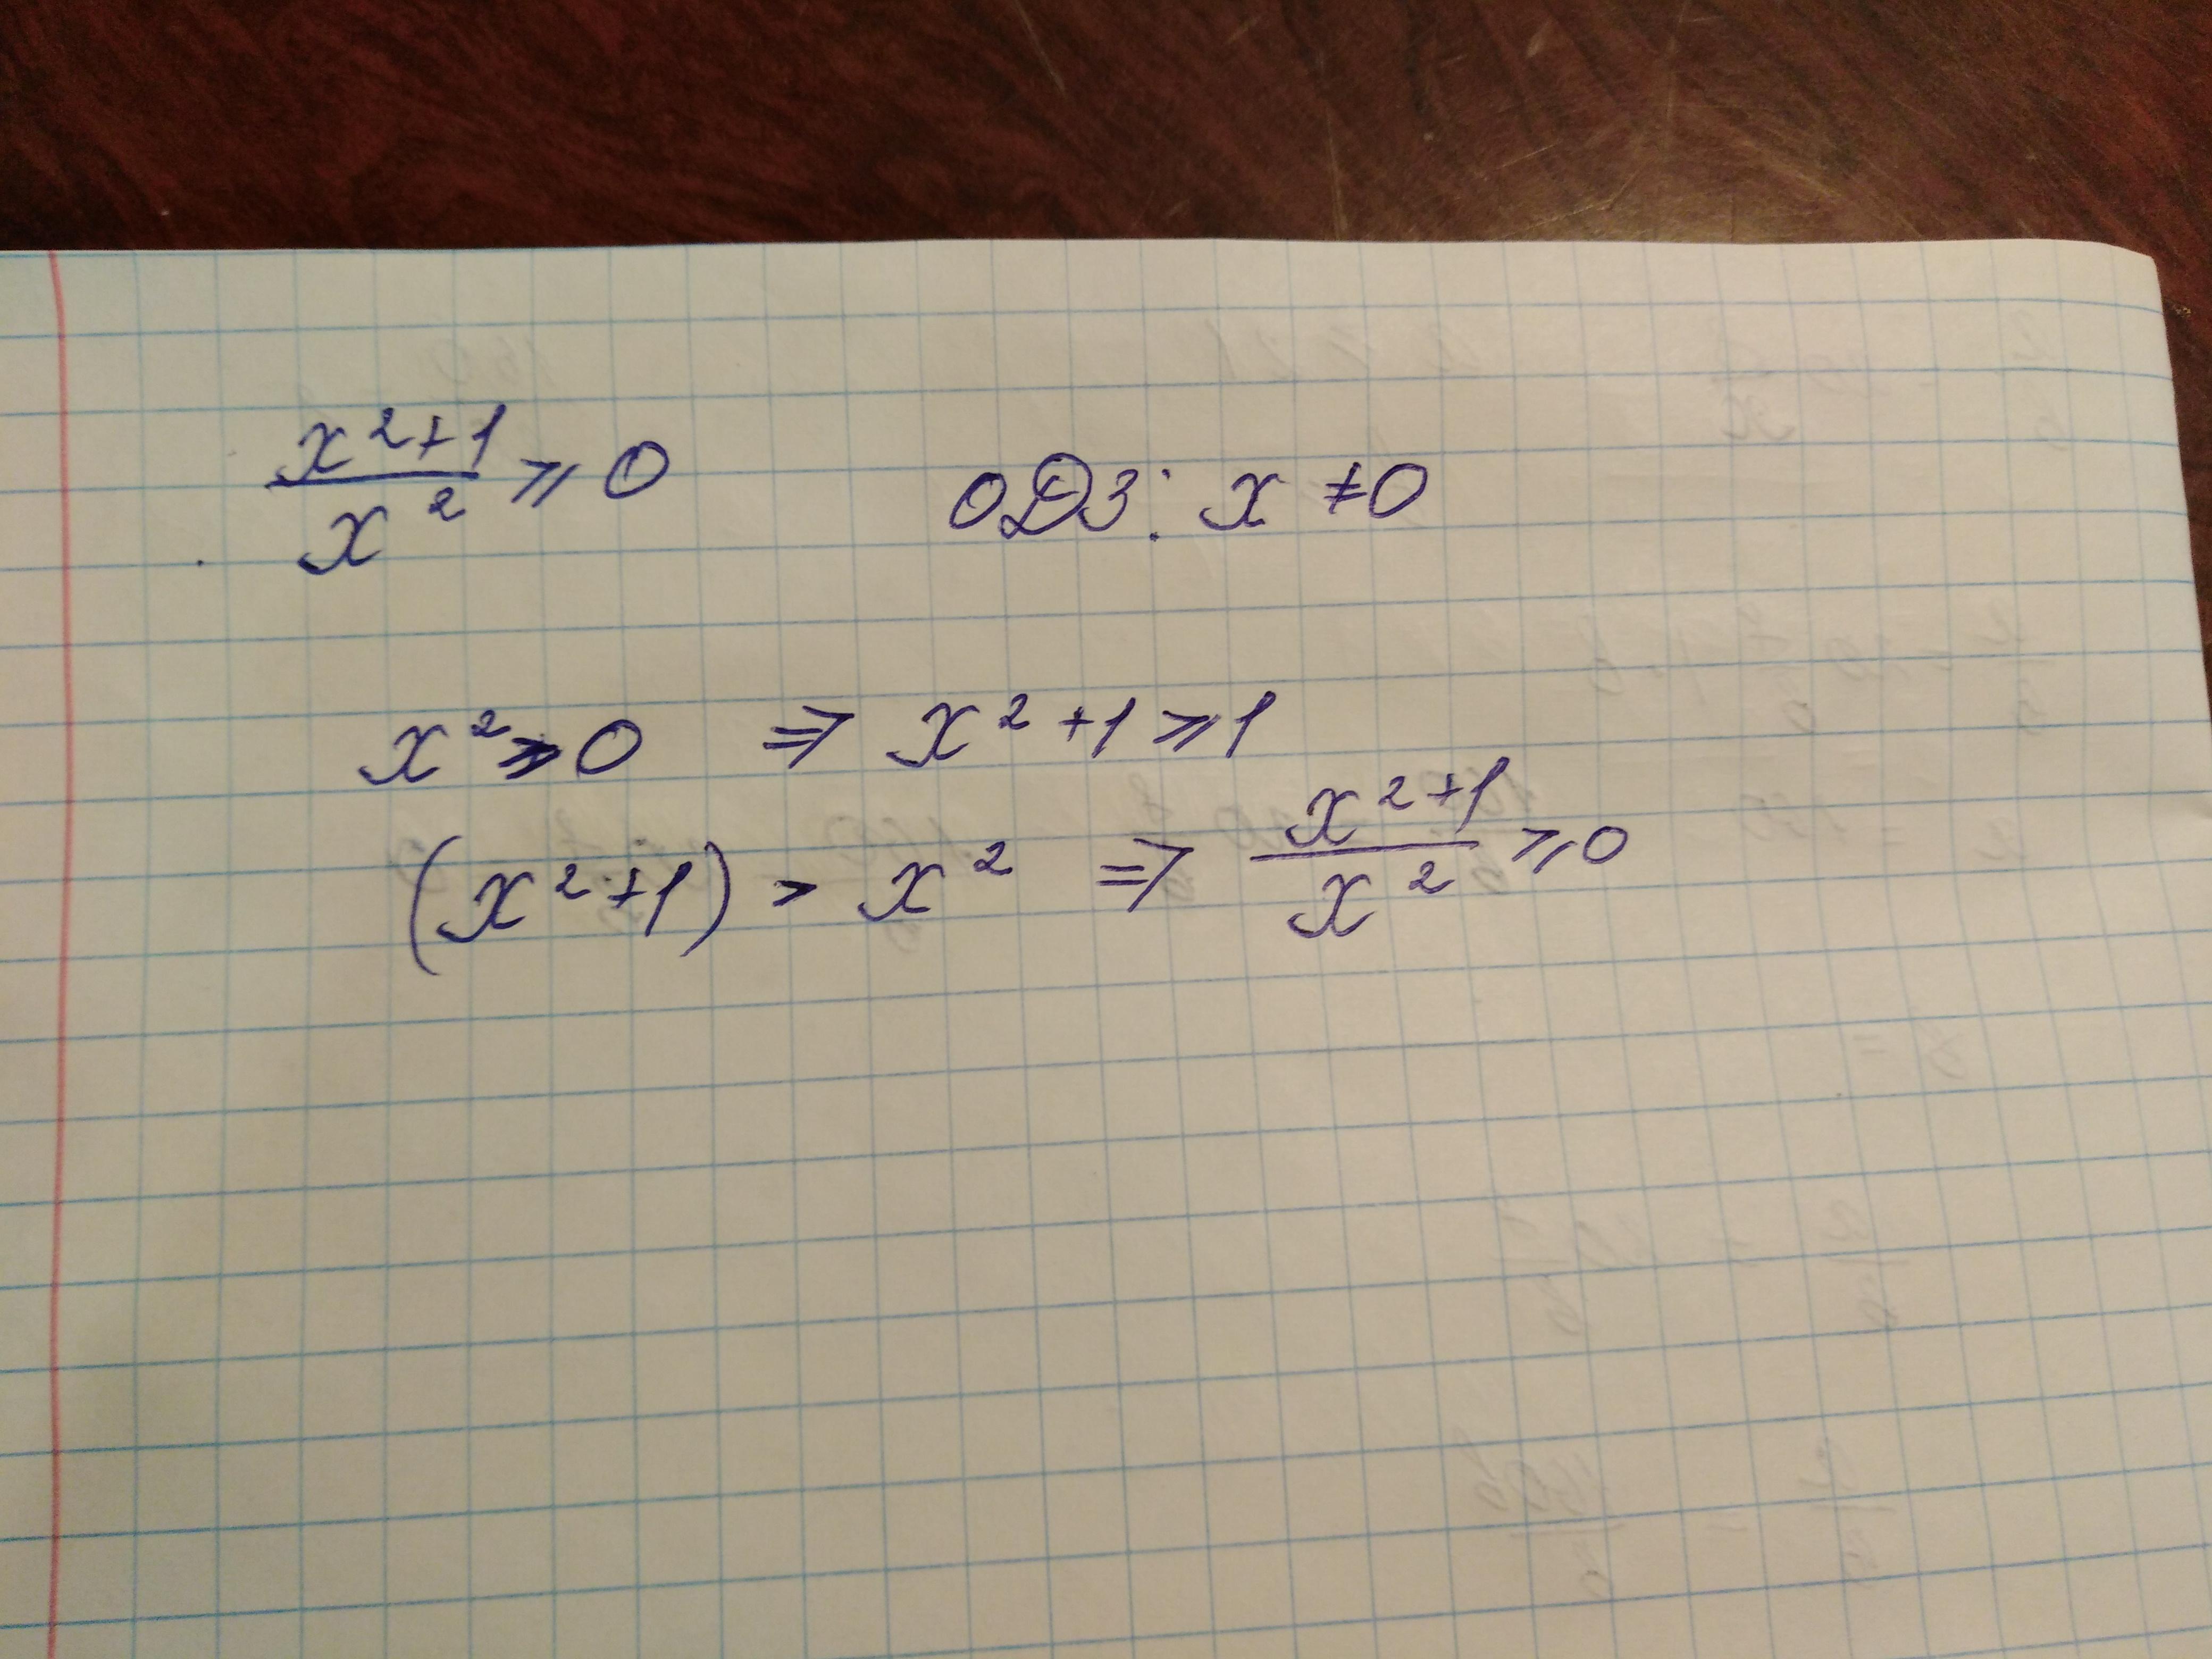 x²+1/x² ⩾ 0 ОДЗ: x ≠ 0
x² ⩾ 0 ⇒ x² + 1 ⩾ 1
(x²+1) > x² ⇒ x²+1/x² ⩾ 0